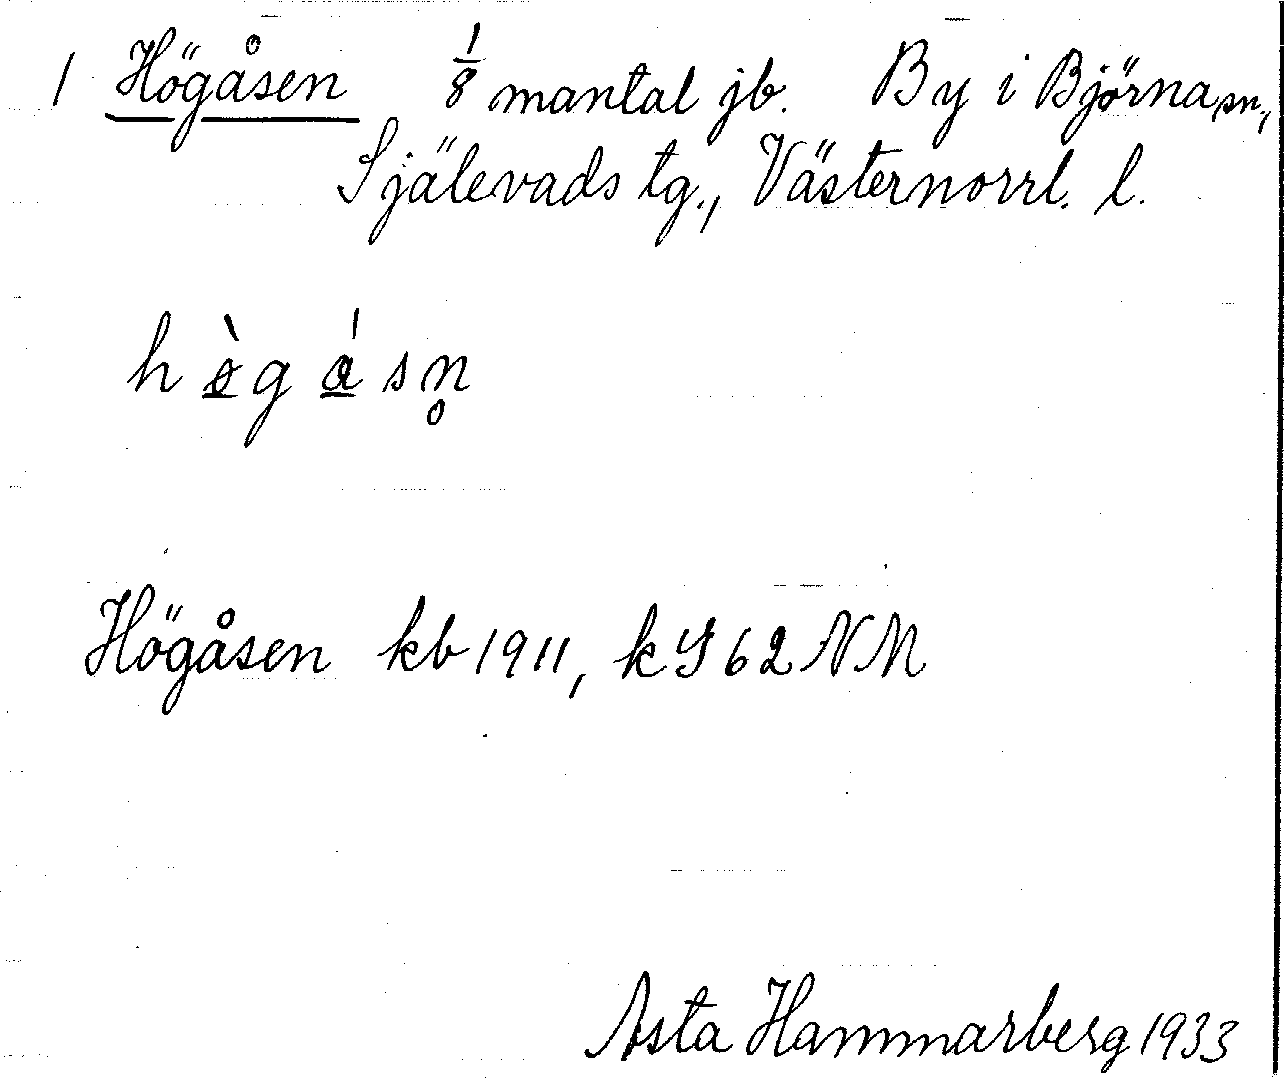 1 Högåsen 1/8 mantal jb. By i Björna sn,
Själevads tg., Västernorrl. l.
hø̲̀gá̲sn̥
Högåsen kb 1911, kS 62 NM
Asta Hammarberg 1933